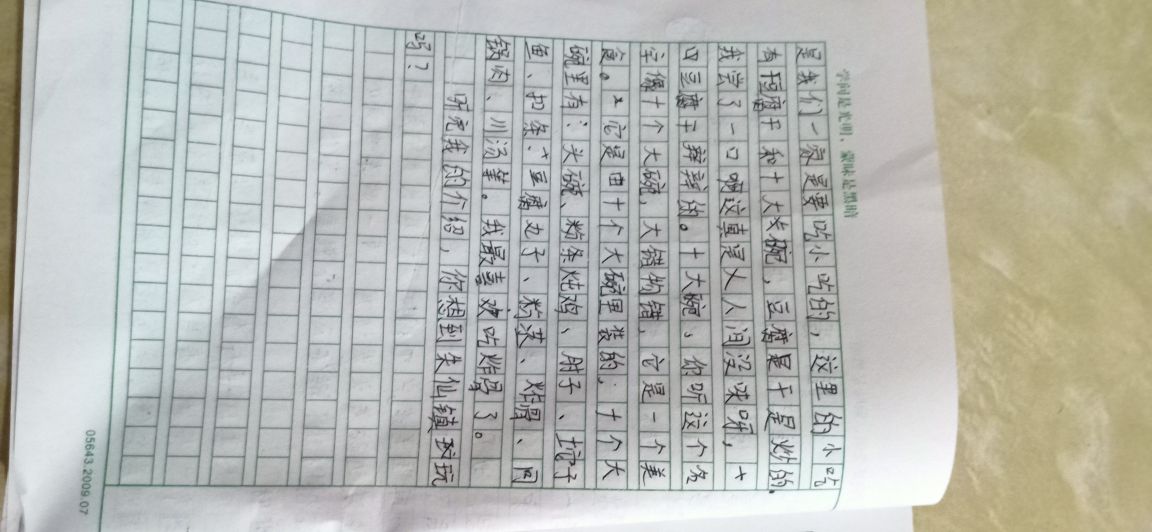 学问是光明，蒙昧是黑暗
是我们一家是要吃小吃的，这里的小吃
有豆腐干和十大碗，豆腐是干是炒的.
我尝了一口啊这真是人人间没味呀，十
口豆腐干辩辩的。十大碗，你听这个名
字像十个大碗，大错物错，它是一个美
食。它是由十个大碗里装的，十个大
碗里有：头碗、粉条炖鸡、肘子、坑子
鱼、扣条、豆腐丸子、粉蒸、炸骨、同
锅肉、川汤等。我最喜欢吃炸骨了。
听完我的介绍，你想到朱仙镇玩玩
吗？
05643.2009.07